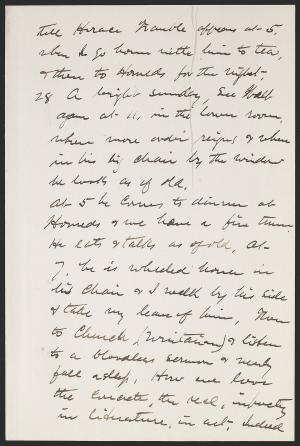 till Horace Traubel appears at 5,
when I go home with him to tea,
& then to Harneds for the night-
28 A bright Sunday, See Walt
again at 11, in the lower room,
where more order reigns & where
in his big chair by the window
he looks as of old.
At 5 he comes to dinner at
Harneds & we have a fine time.
He eats & talks as of old, At
7, he is wheeled home in
his chair & I walk by his side
& take my leave of him, Then
to Church, (Unitarian) & listen
to a bloodless sermon & nearly
fall asleep, How we love
the concrete, the real, in poetry
in literature, in art, indeed